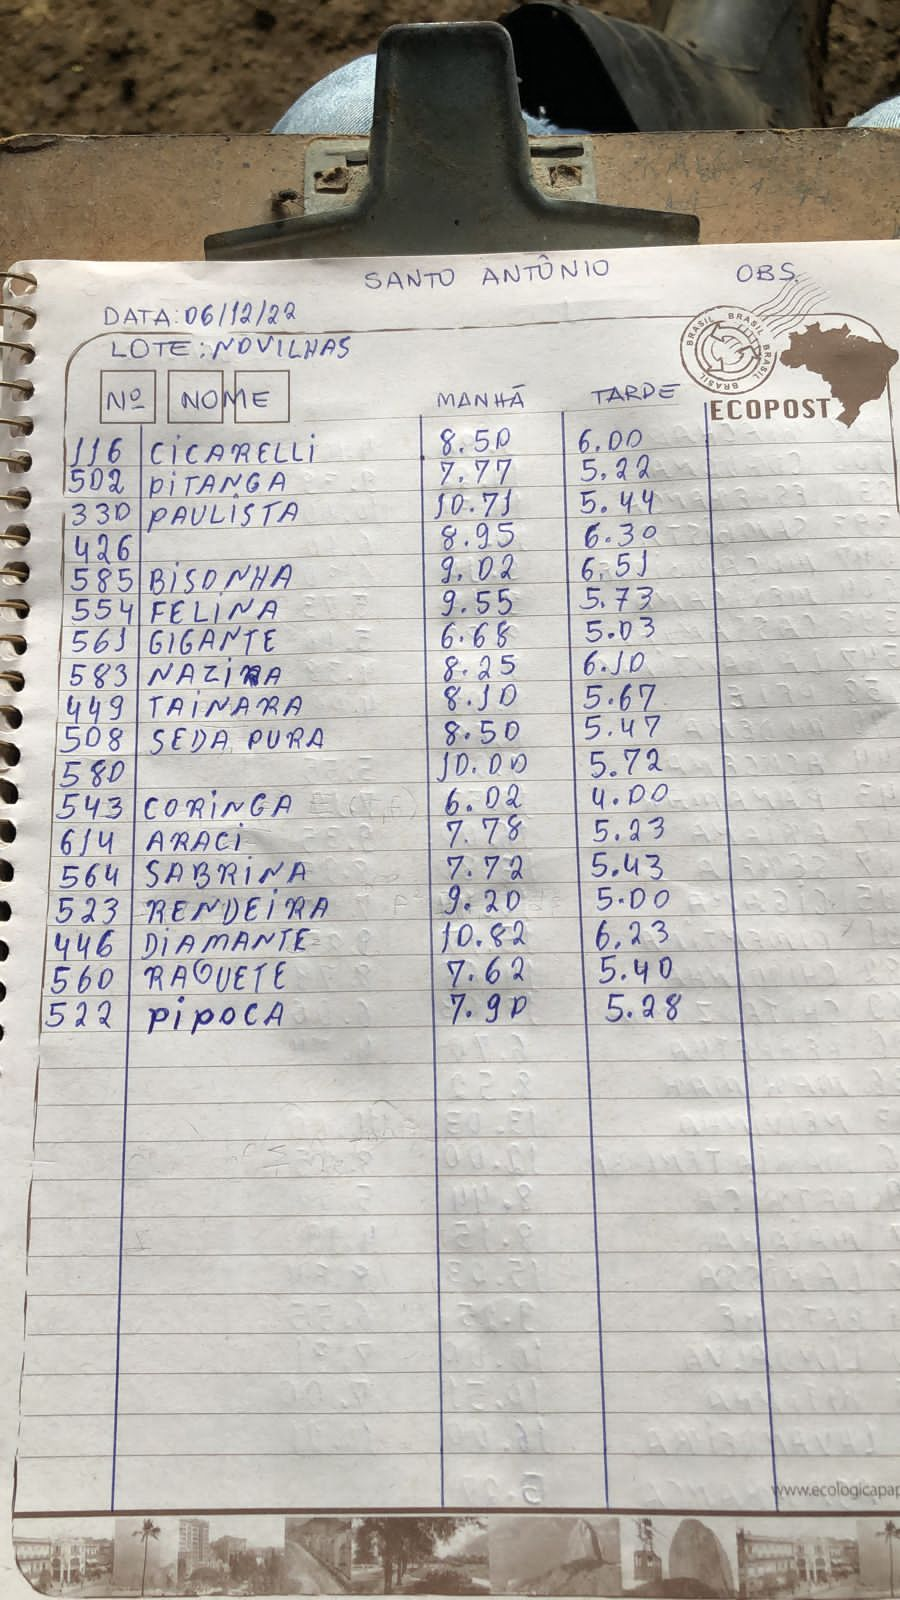 SANTO ANTÔNIO OBS.
DATA: 06/12/22
LOTE: NOVILHAS
BRASIL BRASIL BRASIL BRASIL
ECOPOST
Nº NOME MANHÃ TARDE
116 CICARELLI 8.50 6.00
502 PITANGA 7.77 5.22
330 PAULISTA 10.71 5.44
426 8.95 6.30
585 BISONHA 9.02 6.51
554 FELINA 9.55 5.73
561 GIGANTE 6.68 5.03
583 NAZIRA 8.25 6.10
449 TAINARA 8.10 5.67
508 SEDA PURA 8.50 5.47
580 10.00 5.72
543 CORINGA 6.02 4.00
614 ARACI 7.78 5.23
564 SABRINA 7.72 5.43
523 RENDEIRA 9.20 5.00
446 DIAMANTE 10.82 6.23
560 RAQUETE 7.62 5.40
522 PIPOCA 7.90 5.28
www.ecologicapap